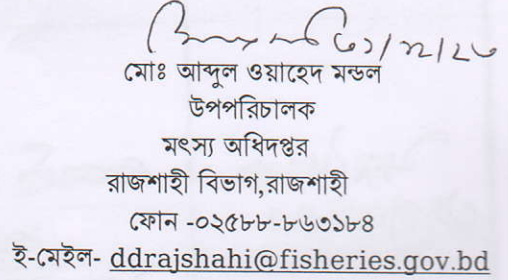 ৩১/১২/২৩
মোঃ আব্দুল ওয়াহেদ মন্ডল
উপপরিচালক
মৎস্য অধিদপ্তর
রাজশাহী বিভাগ,রাজশাহী
ফোন -০২৫৮৮-৮৬৩১৮৪
ই-মেইল- ddrajshahi@fisheries.gov.bd